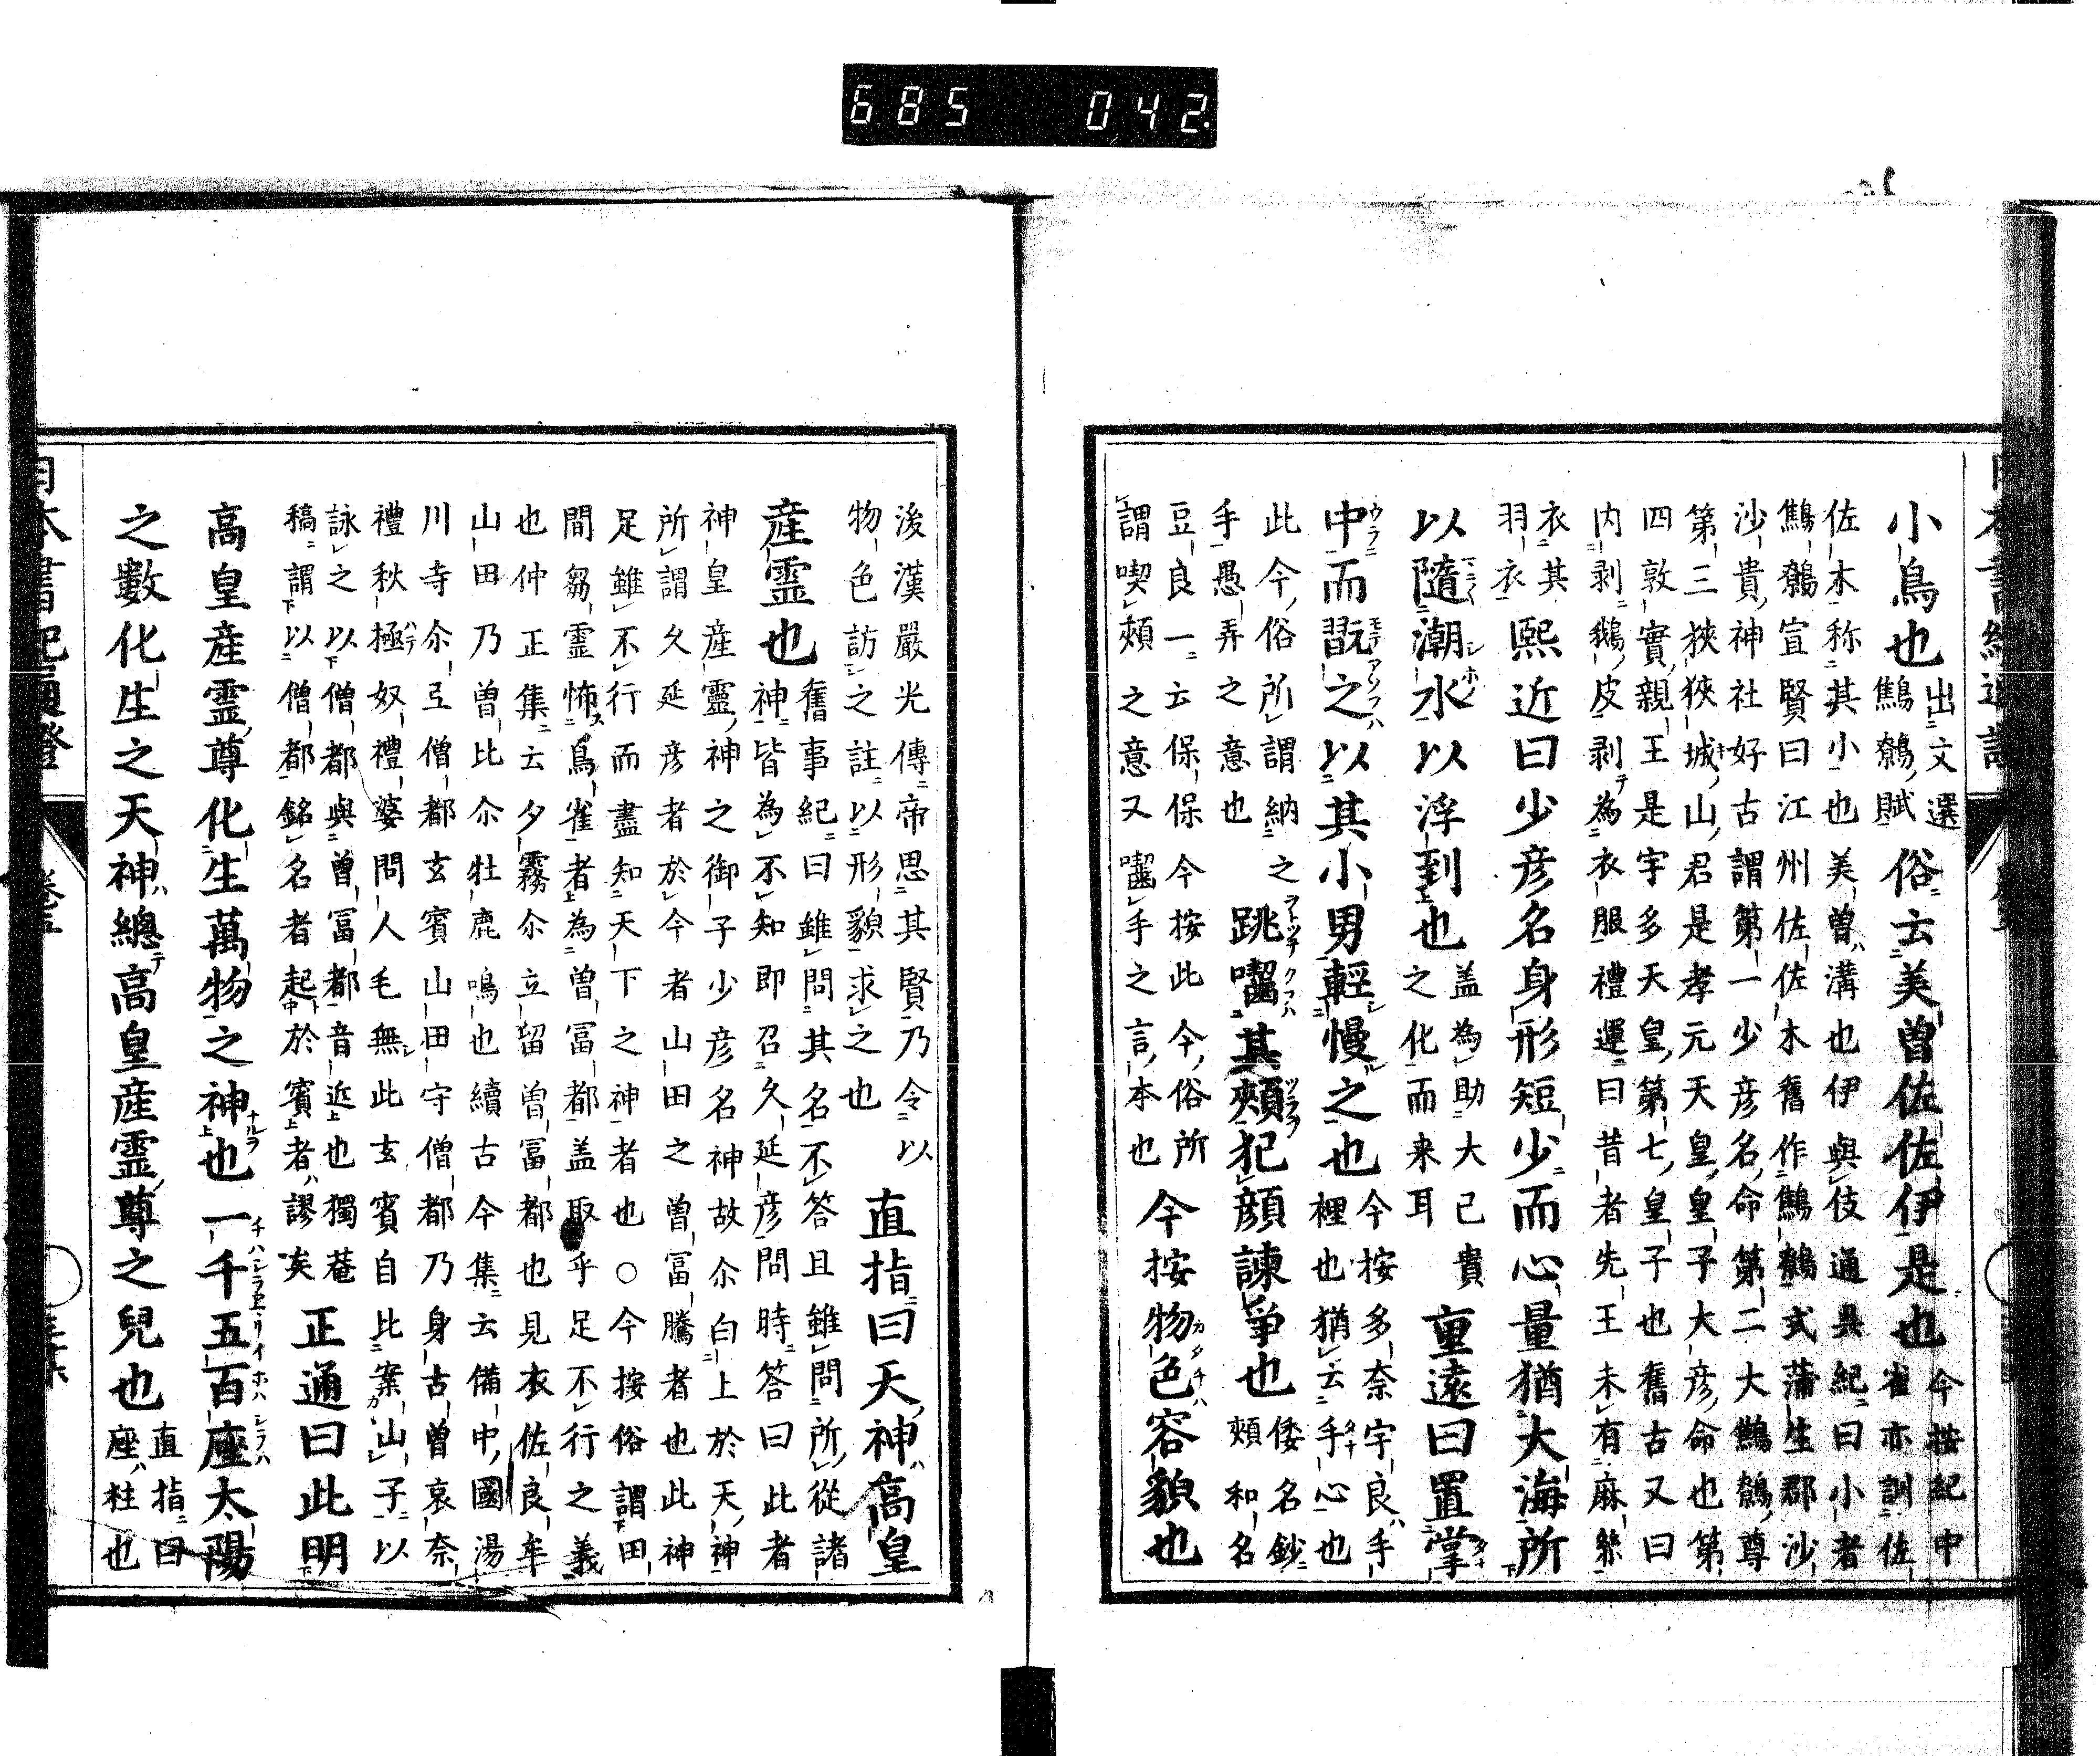 685 042.
小鳥也出文選
鷦鷯賦俗云美曽佐佐伊是也今按紀中
雀亦訓佐
佐木称其小也美曽溝也伊與伎通具紀曰小者
鷦鷯宣賢曰江州佐佐木舊作鷦鷯式蒲生郡沙
沙貴神社好古謂第一少彦名命第二大鷦鷯尊
第三狹狹城山君是孝元天皇皇子大彦命也第
四敦實親王是宇多天皇第七皇子也舊古又曰
内剥鵝皮剥為衣服禮運曰昔者先王未有麻絲
衣其
羽衣熙近曰少彦名身形短少而心量猶大海所
以隨潮水以浮到也盖為助大已貴
之化而来耳重遠曰置掌
中而翫之以其小男輕慢之也今按多奈宇良手
裡也猶云手心也
此今俗所謂納之
手愚弄之意也跳囓其頰犯顔諫爭也倭名鈔
頰和名
豆良一云保保今按此今俗所
謂喫頰之意又囓手之言本也今按物色容貌也
後漢嚴光傳帝思其賢乃令以
物色訪之註以形貌求之也直指曰天神高皇
産霊也舊事紀曰雖問其名不答且雖問所從諸
神皆為不知即召久延彦問時答曰此者
神皇産靈神之御子少彦名神故尒白上於天神
所謂久延彦者於今者山田之曽冨騰者也此神
足雖不行而盡知天下之神者也○今按俗謂田
間芻靈怖鳥雀者為曽冨都盖取乎足不行之義
也仲正集云夕霧尒立留曽冨都也見衣佐良牟
山田乃曽比尒牡鹿鳴也續古今集云備中國湯
川寺尒弖僧都玄賓山田守僧都乃身古曽哀奈
禮秋極奴禮婆問人毛無此玄賓自比案山子以
詠之以僧都與曽冨都音近也獨菴
稿謂以僧都銘名者起於賓者謬矣正通曰此明
高皇産霊尊化生萬物之神也一千五百座太陽
之數化生之天神總高皇産霊尊之兒也直指曰
座柱也